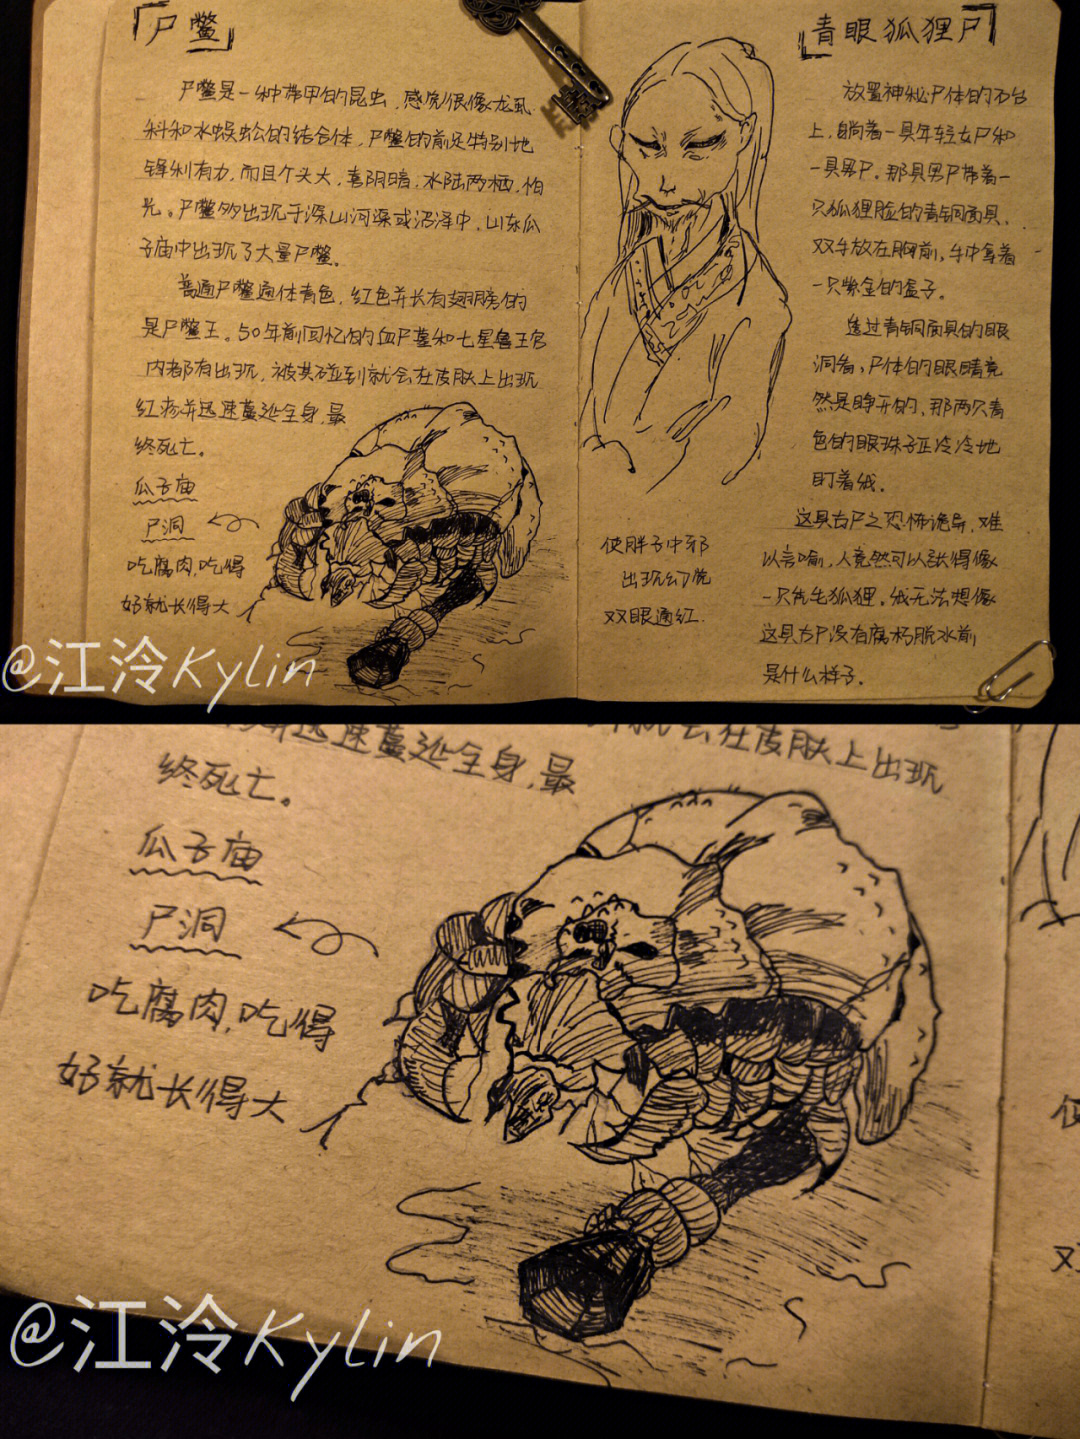 「尸鳖」
尸鳖是一种带甲的昆虫，感觉很像龙虱
科和水蜈蚣的结合体，尸鳖的前足特别地
锋利有力，而且个头大，喜阴暗，水陆两栖，怕
光。尸鳖多出现于深山河渠或沼泽中，山东瓜
子庙中出现了大量尸鳖。
普通尸鳖通体青色，红色并长有翅膀的
是尸鳖王。50年前回忆的血尸墓和七星鲁王宫
内都有出现，被其碰到就会在皮肤上出现
红疹并迅速蔓延全身，最
终死亡。
瓜子庙
尸洞
吃腐肉，吃得
好就长得大
「青眼狐狸尸」
放置神秘尸体的石台
上，躺着一具年轻女尸和
一具男尸。那具男尸带着一
只狐狸脸的青铜面具，
双手放在胸前，手中拿着
一只紫金的盒子。
透过青铜面具的眼
洞看，尸体的眼睛竟
然是睁开的、那两只青
色的眼珠子正冷冷地
盯着我。
这具古尸之恐怖诡异，难
以言喻，人竟然可以长得像
一只先生狐狸。我无法想像
这具古尸没有腐朽脱水前
是什么样子。
使胖子中邪
出现幻觉
双眼通红.
@江泠Kylin
速蔓延全身，最
就会在皮肤上出现
终死亡。
瓜子庙
尸洞
吃腐肉，吃得
好就长得大
@江泠Kylin